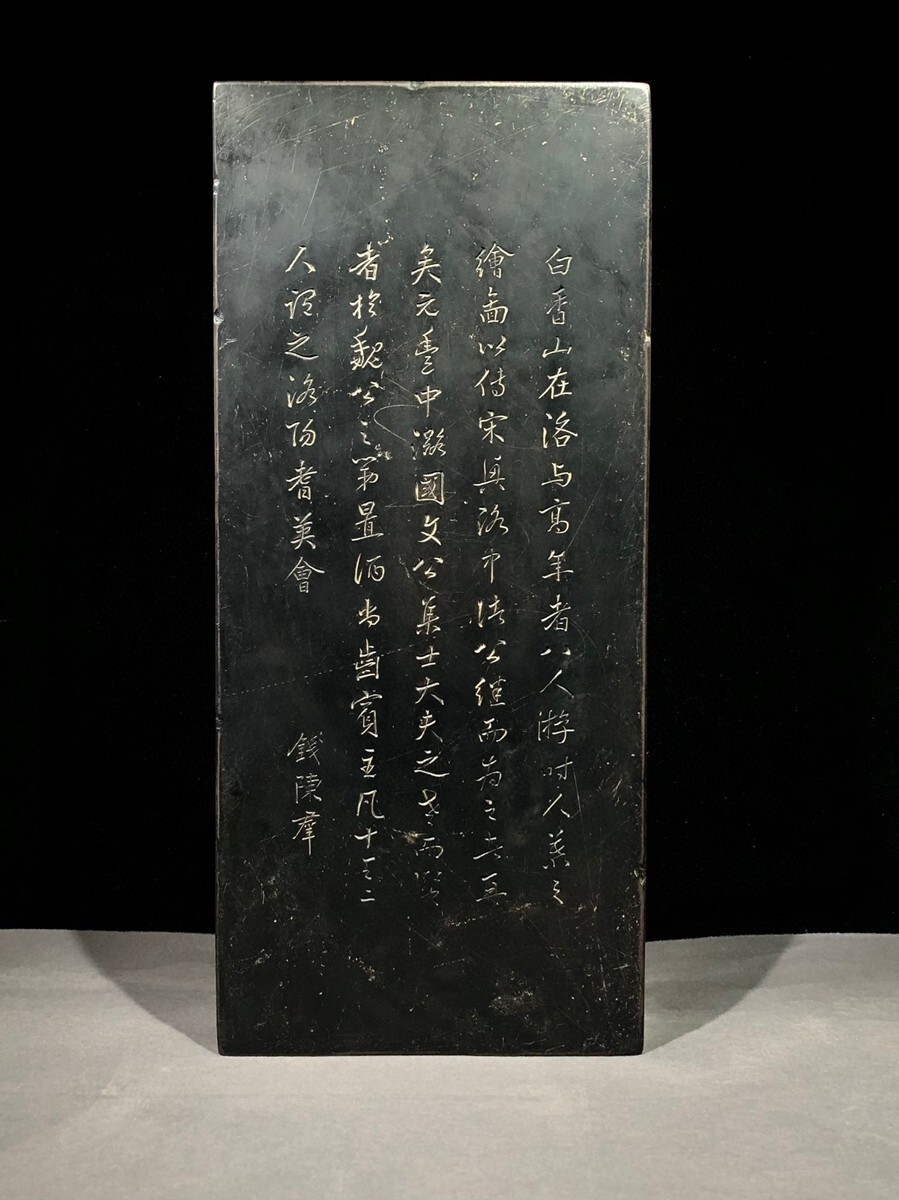 白香山在洛与高年者八人游时人慕之
繪圖以传宋興洛中諸公继而為之者再
矣元豐中潞國文公集士大夫之老而賢
者於魏公之第置酒尚齒賓主凡十有二
人謂之洛陽耆英會
錢陳羣